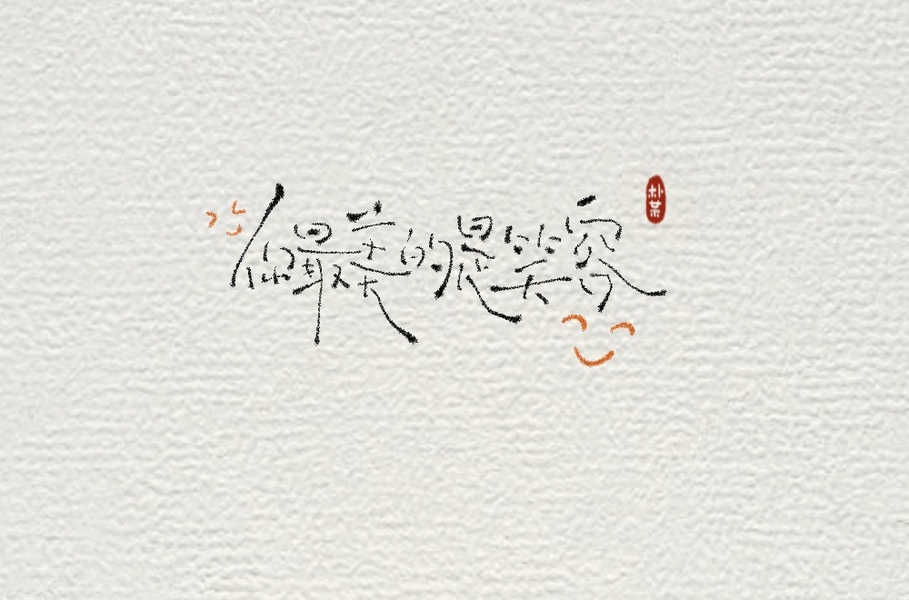 你最美的是笑容
朴某